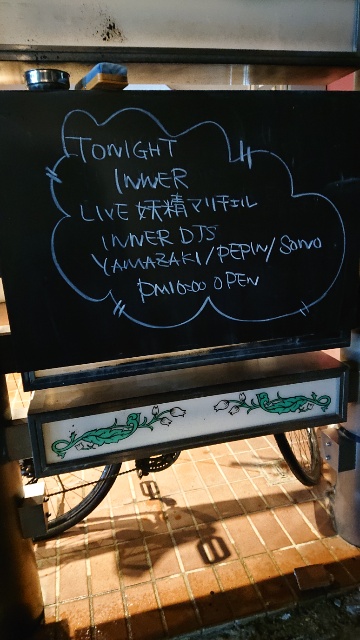 TONIGHT
INNER
LIVE 妖精マリチェル
INNER DJS
YAMAZAKI/PEPIN/SONO
PM10:00 OPEN